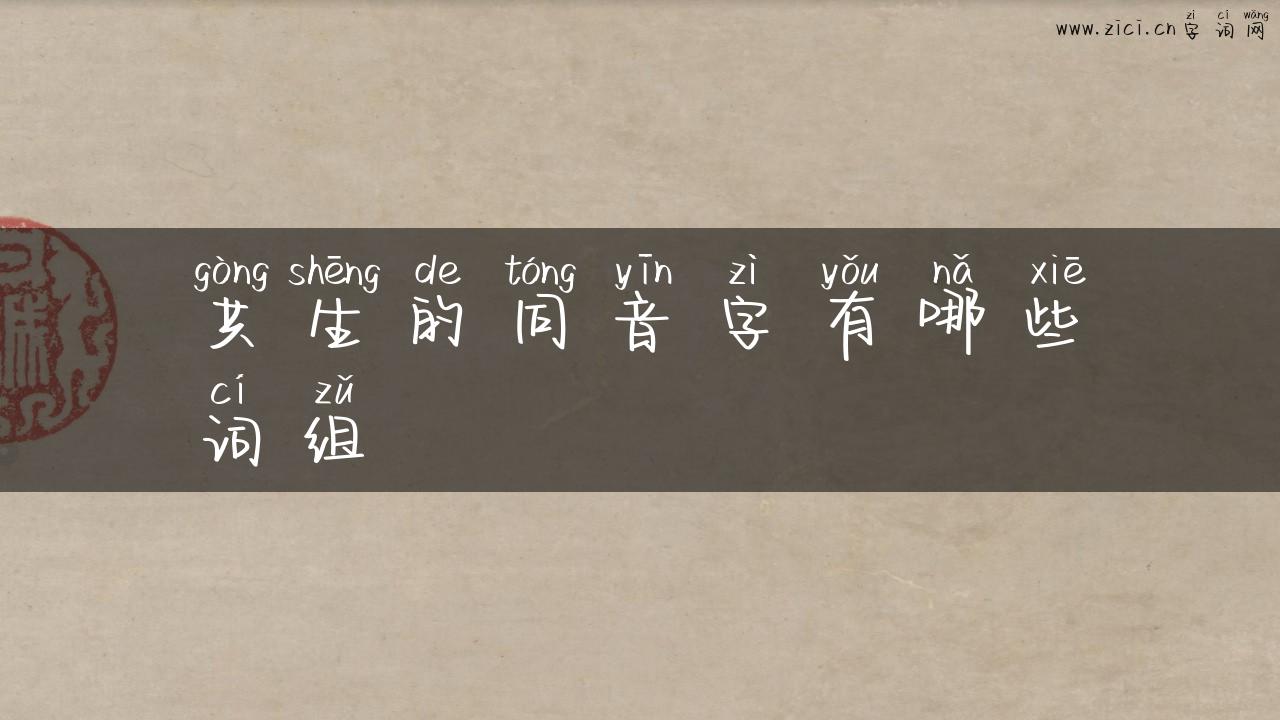 zì cí wǎng
www.zici.cn 字词网
gòng shēng de tóng yīn zì yǒu nǎ xiē
共生的同音字有哪些
cí zǔ
词组